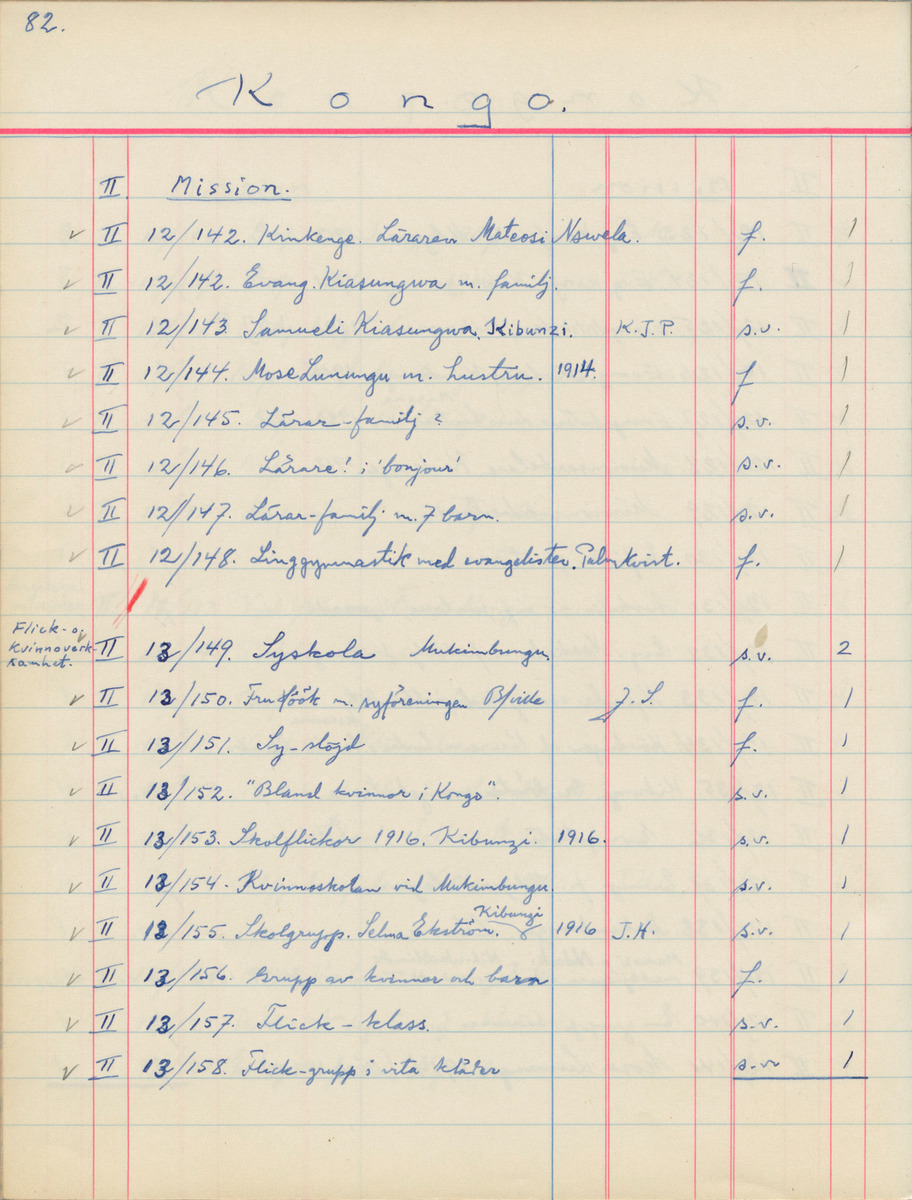 82.
Kongo.
II Mission.
v II 12/142. Kinkenge. Läraren Mateosi Nswela. f. 1
v II 12/142. Evang. Kiasungwa m. familj. f. 1
v II 12/143. Samueli Kiasungwa, Kibunzi. K.J.P. s.v. 1
v II 12/144. Mose Lunungu m. hustru. 1914. f 1
v II 12/145. Lärar-familj? s.v. 1
v II 12/146. Lärare! i 'bonjour' s.v. 1
v II 12/147. Lärar-familj m. 7 barn. s.v. 1
v II 12/148. Linggymnastik med evangelister. Palmkvist. f. 1
Flick- o.
kvinnoverk-
samhet.
v II 13/149. Syskola Mukimbungu. s.v. 2
v II 13/150. Fru Höök m. syföreningen B/ville J.S. f. 1
v II 13/151. Sy-slöjd f. 1
v II 13/152. "Bland kvinnor i Kongo". s.v. 1
v II 13/153. Skolflickor 1916. Kibunzi. 1916. s.v. 1
v II 13/154. Kvinnoskolan vid Mukimbungu. s.v. 1
v II 13/155. Skolgrupp. Selma Ekström. Kibunzi 1916 J.H. s.v. 1
v II 13/156. Grupp av kvinnor och barn f. 1
v II 13/157. Flick-klass. s.v. 1
v II 13/158. Flick-grupp i vita kläder s.v. 1